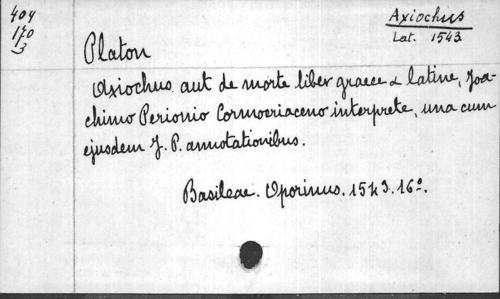 404
170
3
Axiochus
Lat. 1543
Platon
Axiochus aut de morte liber graece & latine, Joa-
chimo Perionio Cormoeriaceno interprete, una cum
ejusdem J. P. annotationibus.
Basileae. Oporinus. 1543. 16º.